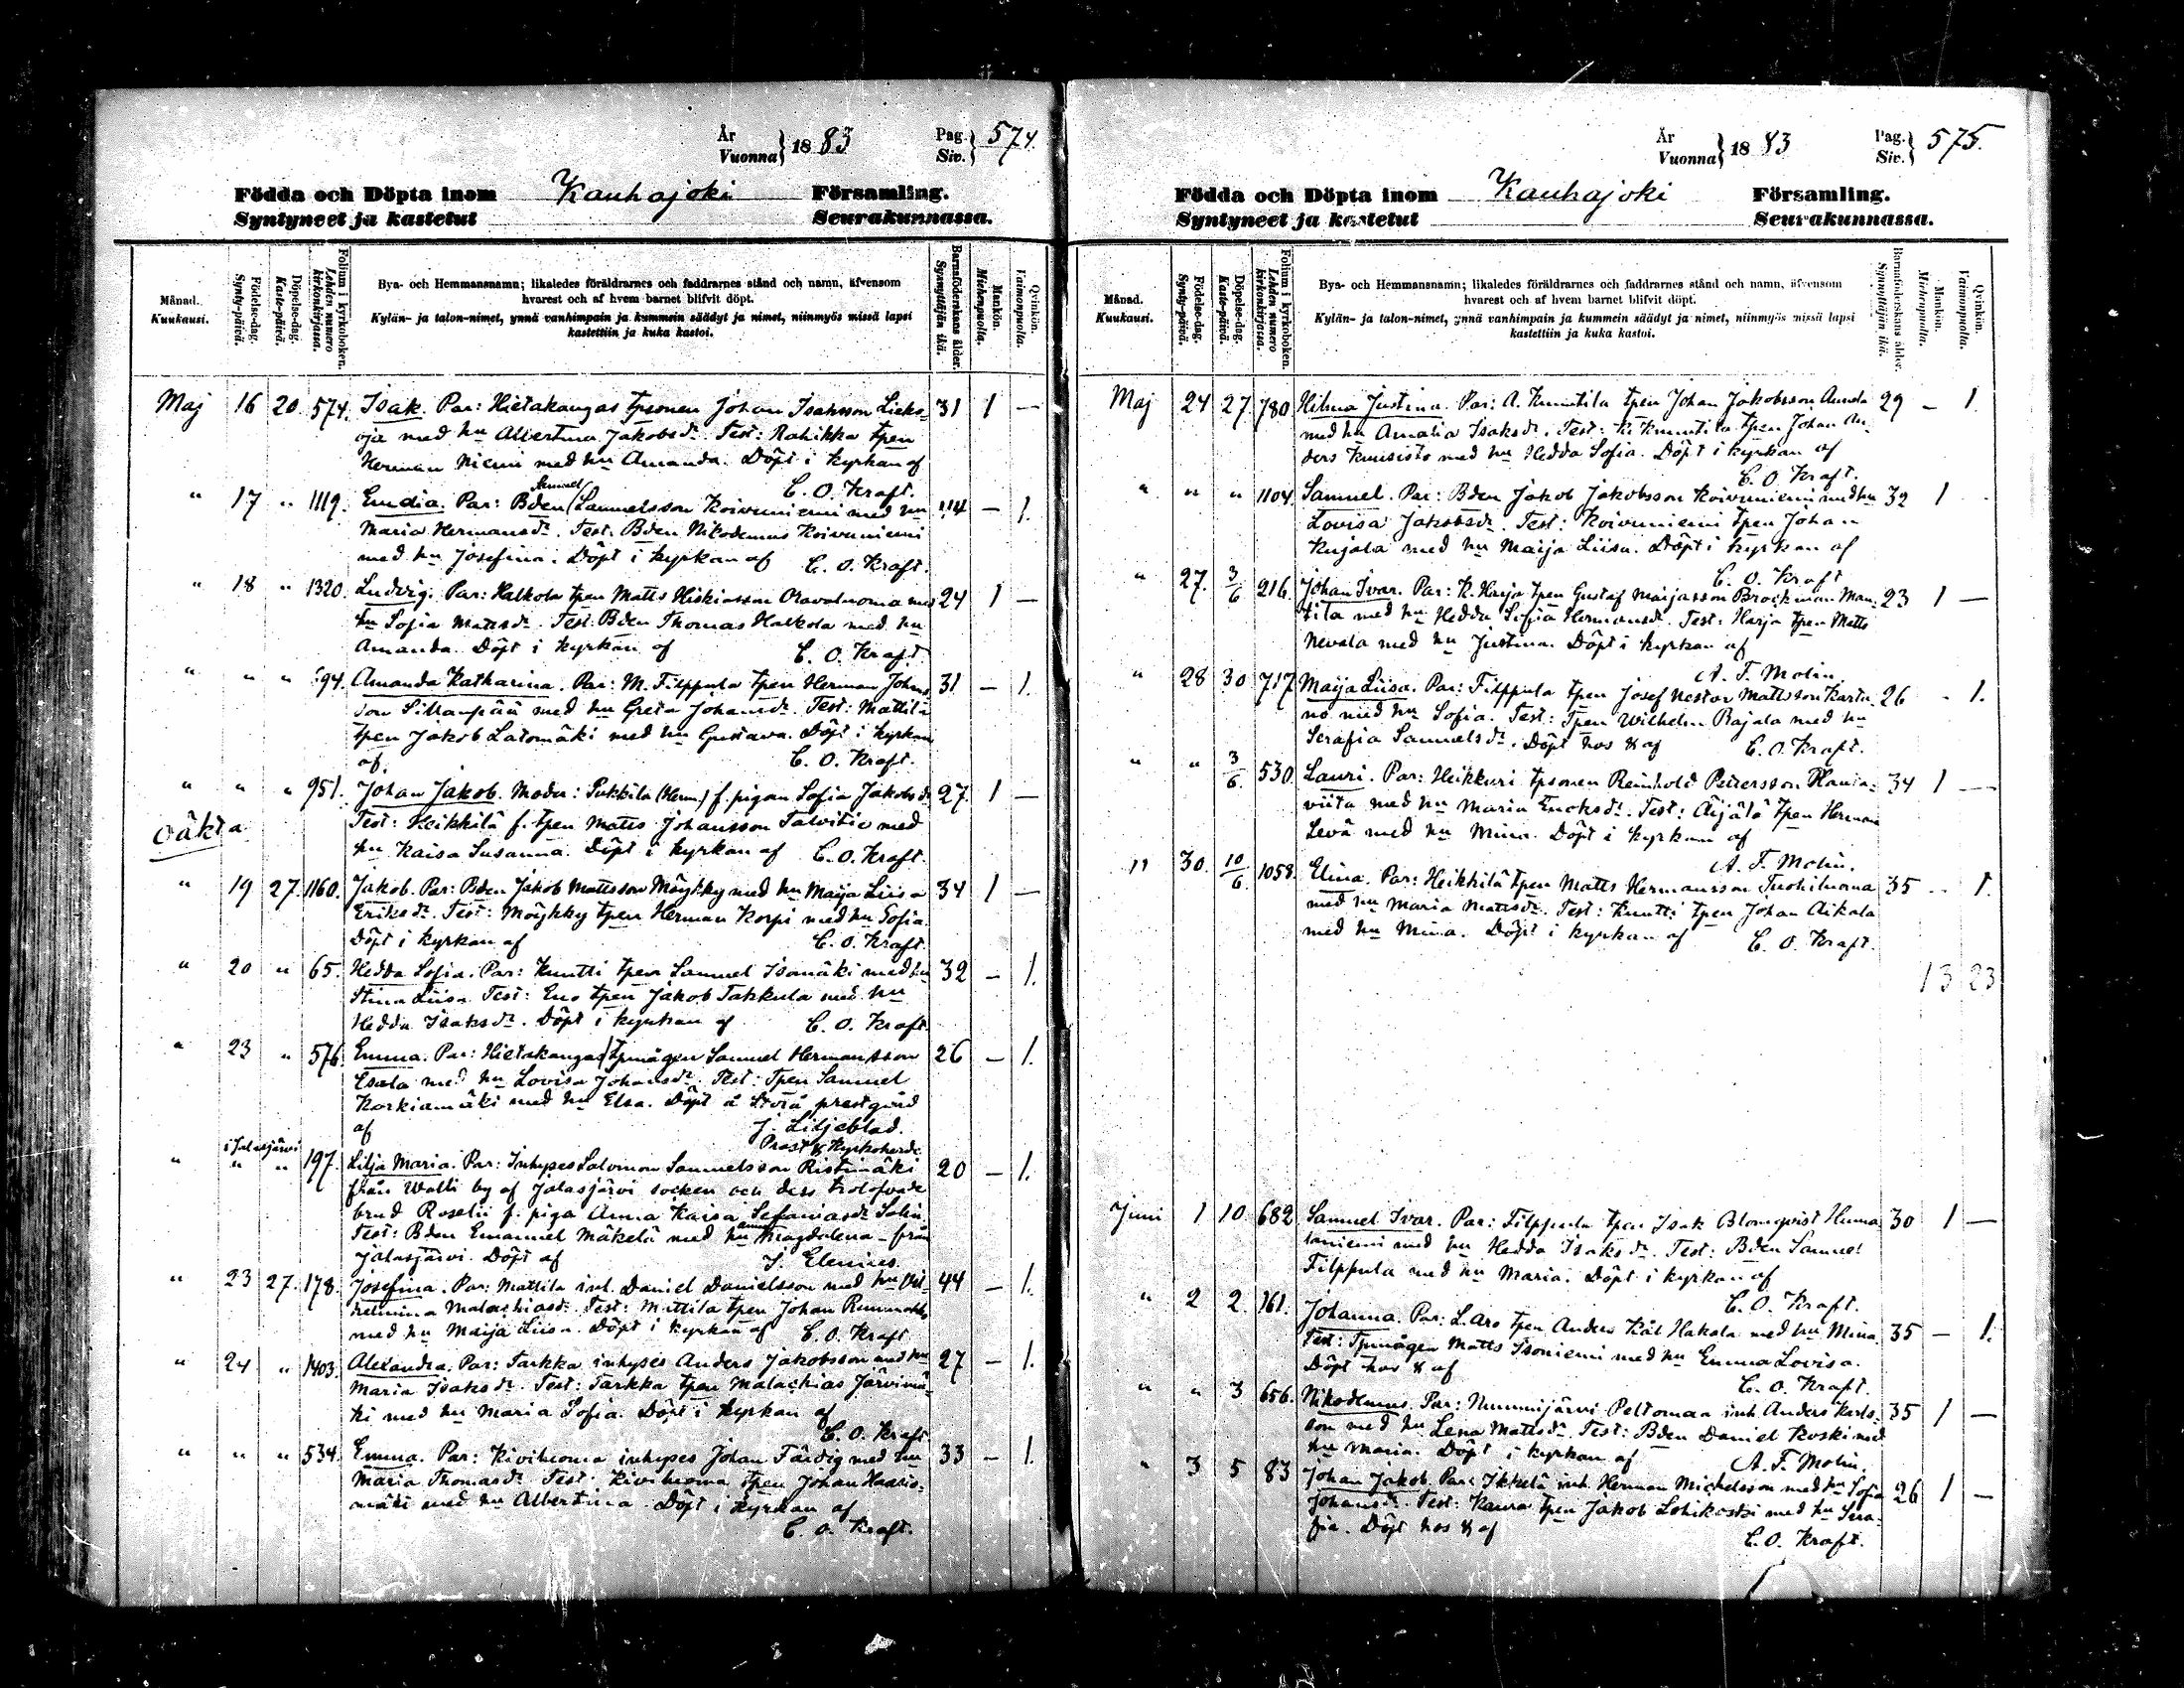 År
Vuonna } 18 83
Pag.
Siv. } 574.
Födda och Döpta inom Kauhajoki Församling.
Syntyneet ja kastetut Seurakunnassa.
Månad.
Kuukausi.
Födelse-dag.
Synty-päivä.
Döpelse-dag.
Kaste-päivä.
Folium i kyrkoboken.
Lehden numero kirkonkirjassa.
Bya- och Hemmansnamn; likaledes föräldrarnes och faddrarnes stånd och namn, äfvensom
hvarest och af hvem barnet blifvit döpt.
Kylän- ja talon-nimet, ynnä vanhimpain ja kummein säädyt ja nimet, niinmyös missä lapsi
kastettiin ja kuka kastoi.
Barnaföderskans ålder.
Synnyttäjän ikä.
Mankön.
Miehenpuolta.
Qvinkön.
Vaimonpuolta.
Maj 16 20. 574. Isak. Par: Hietakangas tpsonen Johan Isaksson Lieks- 31 1 —
oja med hu Albertina Jakobsdr. Test: Rahikka tpen
Herman Niemi med hu Amanda. Döpt i kyrkan af
C. O. Kraft.
" 17 " 1119. Emdia. Par: Bden (Samuel) Samuelsson Koivuniemi med hu 44 — 1.
Maria Hermansdr. Test: Bden Nikodemus Koivuniemi
med hu Josefina. Döpt i kyrkan af C. O. Kraft.
" 18 " 1320. Ludvig. Par: Halkola tpen Matts Hiskiasson Oravaluoma med 24 1 —
hu Sofia Mattsdr. Test: Bden Thomas Halkola med hu
Amanda. Döpt i kyrkan af C. O. Kraft.
" " " 94. Amanda Katharina. Par: M. Filppula tpen Herman Johns- 31 — 1.
son Sillanpää med hu Greta Johansdr. Test: Mattila
tpen Jakob Latomäki med hu Gustava. Döpt i kyrkan
af. C. O. Kraft.
" " " 951. Johan Jakob. Moder: Pukkila (Herm) f. pigan Sofia Jakobsdr 27. 1 —
oäkta
Test: Heikkilä f. tpen Matts Johansson Talvitie med
hu Kaisa Susanna. Döpt i kyrkan af C. O. Kraft.
" 19 27. 1160. Jakob. Par: Bden Jakob Mattsson Möykky med hu Maija Liisa 34 1 —
Eriksdr. Test: Möykky tpen Herman Korpi med hu Sofia.
Döpt i kyrkan af C. O. Kraft.
" 20 " 65. Hedda Sofia. Par: Knutti tpen Samuel Isomäki med hu 32 — 1.
Stina Liisa. Test: Eno tpen Jakob Takkula med hu
Hedda Isaksdr. Döpt i kyrkan af C. O. Kraft.
" 23 " 576. Emma. Par: Hietakangas tpmågen Samuel Hermansson 26 — 1.
Esala med hu Lovisa Johansdr. Test: Tpen Samuel
Korkiamäki med hu Elsa. Döpt å Storå prestgård
af J. Liljeblad.
Prost & Kyrkoherde
i Jalasjärvi
" " " 197. Lilja Maria. Par: Inhyses Salomon Samuelsson Ristimäki 20 — 1.
från Walli by af Jalasjärvi socken och dess trolofvade
brud Roselii f. piga Anna Kaisa Sefaniasdr Salin.
Test: Bden Emanuel Mäkelä med hu Anna Magdalena – från
Jalasjärvi. Döpt af S. Elenius.
" 23 27. 178. Josefina. Par: Mattila inh. Daniel Danielsson med hu Vil- 44 — 1.
helmina Malachiasdr. Test: Mattila tpen Johan
med hu Maija Liisa. Döpt i kyrkan af C. O. Kraft.
" 24 " 1403. Alexandra. Par: Tarkka inhyses Anders Jakobsson med hu 27 — 1.
Maria Isaksdr. Test: Tarkka tpen Malachias Järvimä-
ki med hu Maria Sofia. Döpt i kyrkan af
C. O. Kraft
" " " 534. Emma. Par: Kiviluoma inhyses Johan Färdig med hu 33 — 1.
Maria Thomasdr. Test: Kiviluoma tpen Johan Haario-
mäki med hu Albertina. Döpt i kyrkan af
C. O. Kraft.
År
Vuonna } 18 83
Pag.
Siv. } 575.
Födda och Döpta inom Kauhajoki Församling.
Syntyneet ja kastetut Seurakunnassa.
Månad.
Kuukausi.
Födelse-dag.
Synty-päivä.
Döpelse-dag.
Kaste-päivä.
Folium i kyrkoboken.
Lehden numero kirkonkirjassa.
Bya- och Hemmansnamn; likaledes föräldrarnes och faddrarnes stånd och namn, äfvensom
hvarest och af hvem barnet blifvit döpt.
Kylän- ja talon-nimet, ynnä vanhimpain ja kummein säädyt ja nimet, niinmyös missä lapsi
kastettiin ja kuka kastoi.
Barnaföderskans ålder.
Synnyttäjän ikä.
Mankön.
Miehenpuolta.
Qvinkön.
Vaimonpuolta.
Maj 24 27. 780. Hilma Justina. Par: A. Knuutila tpen Johan Jakobsson Aunola 29 — 1
med hu Amalia Isaksdr. Test: K. Knuutila tpen Johan An-
ders Kuusisto med hu Hedda Sofia. Döpt i kyrkan af
C. O. Kraft.
" " " 1104. Samuel. Par: Bden Jakob Jakobsson Koivuniemi med hu 32 1
Lovisa Jakobsdr. Test: Koivuniemi tpen Johan
Kujala med hu Maija Liisa. Döpt i kyrkan af
C. O. Kraft
" 27. 3/6 216. Johan Ivar. Par: K. Harja tpen Gustaf Maijasson Brockman Man- 23 1 —
tila med hu Hedda Sofia Hermansdr. Test: Harja tpen Matts
Nevala med hu Justina. Döpt i kyrkan af
A. F. Molin.
" 28 30 717. Maija Liisa. Par: Filppula tpen Josef Nestor Mattsson Karta- 26 - 1.
no med hu Sofia. Test: Tpen Wilhelm Rajala med hu
Serafia Samuelsdr. Döpt hos & af C. O. Kraft.
" " 3/6. 530. Lauri. Par: Heikkuri tpsonen Reinhold Petersson Hauta- 34 1 —
viita med hu Maria Enoksdr. Test: Äijälä tpen Herman
Levä med hu Mina. Döpt i kyrkan af
A. F. Molin.
" 30. 10/6. 1058. Elina. Par: Heikkilä tpen Matts Hermansson Tuohiluoma 35 - 1.
med hu Maria Mattsdr. Test: Knutti tpen Johan Aikala
med hu Mina. Döpt i kyrkan af C. O. Kraft.
13 23
Juni 1 10 682. Samuel Ivar. Par: Filppula tpen Isak Blomqvist Huma- 30 1 —
laniemi med hu Hedda Isaksdr. Test: Bden Samuel
Filppula med hu Maria. Döpt i kyrkan af
C. O. Kraft.
" 2 2. 161. Johanna. Par: L. Aro tpen Anders Hakala med hu Mina. 35 — 1.
Test: Tpmågen Matts Isoniemi med hu Emma Lovisa.
Döpt hos & af C. O. Kraft.
" " 3 656. Nikodemus. Par: Nummijärvi Peltomaa inh. Anders Karls- 35 1 —
son med hu Lena Mattsdr. Test: Bden Daniel Koski med
hu Maria. Döpt i kyrkan af A. F. Molin.
" 3 5 83 Johan Jakob. Par: Ikkelä inh. Herman Michelsson med hu Sofia 26 1 —
Johansdr. Test: Kaura tpen Jakob Lohikoski med hu Sera-
fia. Döpt hos & af
C. O. Kraft.